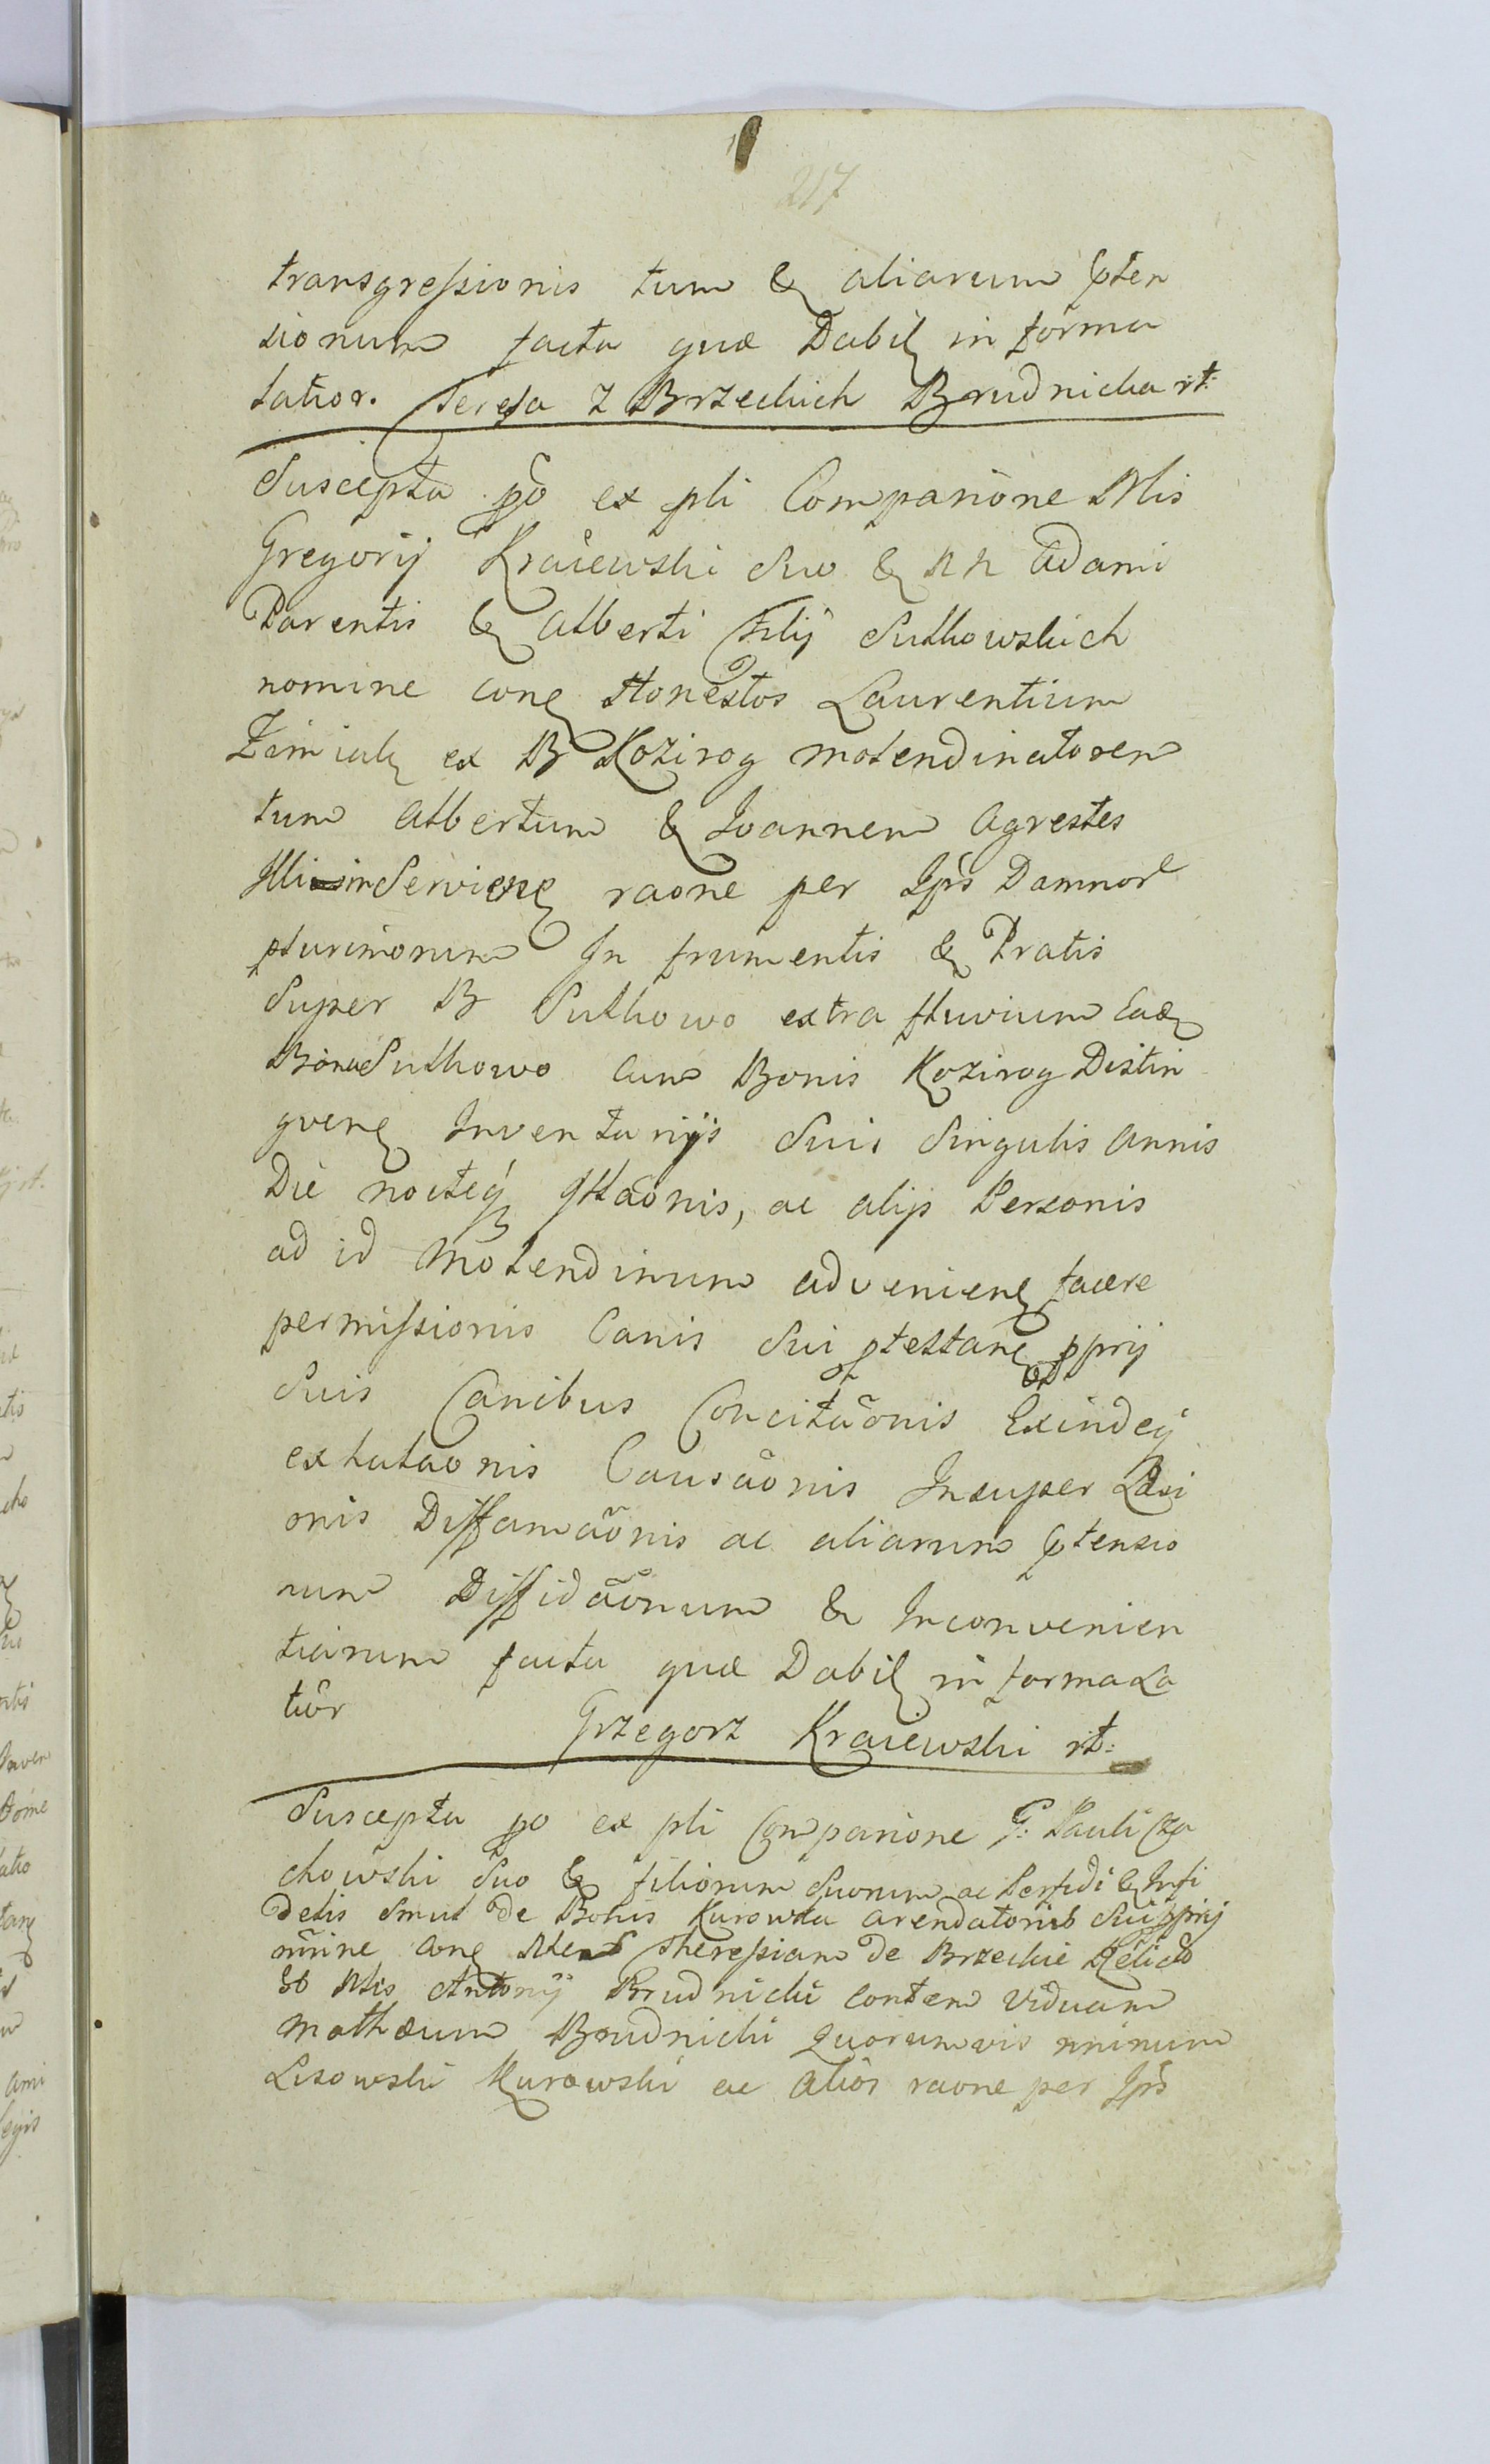 217
transgressionis tum & aliarum pten
sionum facta quæ Dabit in forma
latior. Teresa z Brzeckich Brudnicka rt:
Suscepta po ex pli Comparione Mis
Gregorij Kraiewski Suo & NN Adami
Parentis & Alberti Filij Sutkowskich
nomine con Honestos Laurentium
ex B Kozirog molendinatorem
tum Albertum & Joannem Agrestes
Illi inServien raone per Ips Damnor
plurimorum In frumentis & Pratis
Super B Sutkowo extra fluvium Ead
Bona Sutkowo cum Bonis Kozirog Distin
guen Inventarijs Suis Singulis Annis
Die nocteq Illaonis, ac alijs Personis
ad id Molendinum advenien facere
permissionis Canis Sui ptestan pprij
Suis Canibus Concitaonis Exindeq
exlutaonis Causaonis Insuper Læsi
onis Diffamaonis ac aliarum ptensio
num Diffidaonum & Inconvenien
tiarum facta quæ Dabit in forma La
tior Grzegorz Kraiewski rt:
Suscepta po ex pli Comparione G: Pauli Cza
chowski Suo & filiorum Suorum ac Perfidi & Infi
delis Smul de Bonis Kurowka arendatoris Sui pprij
nmine con Theressiam de Brzeckie Relicta
Mis Antonij Brudnicki contem Viduam
Mathæum Brudnicki quorumvis nminum
Lisowski Kurowski ac alior raone per Ips